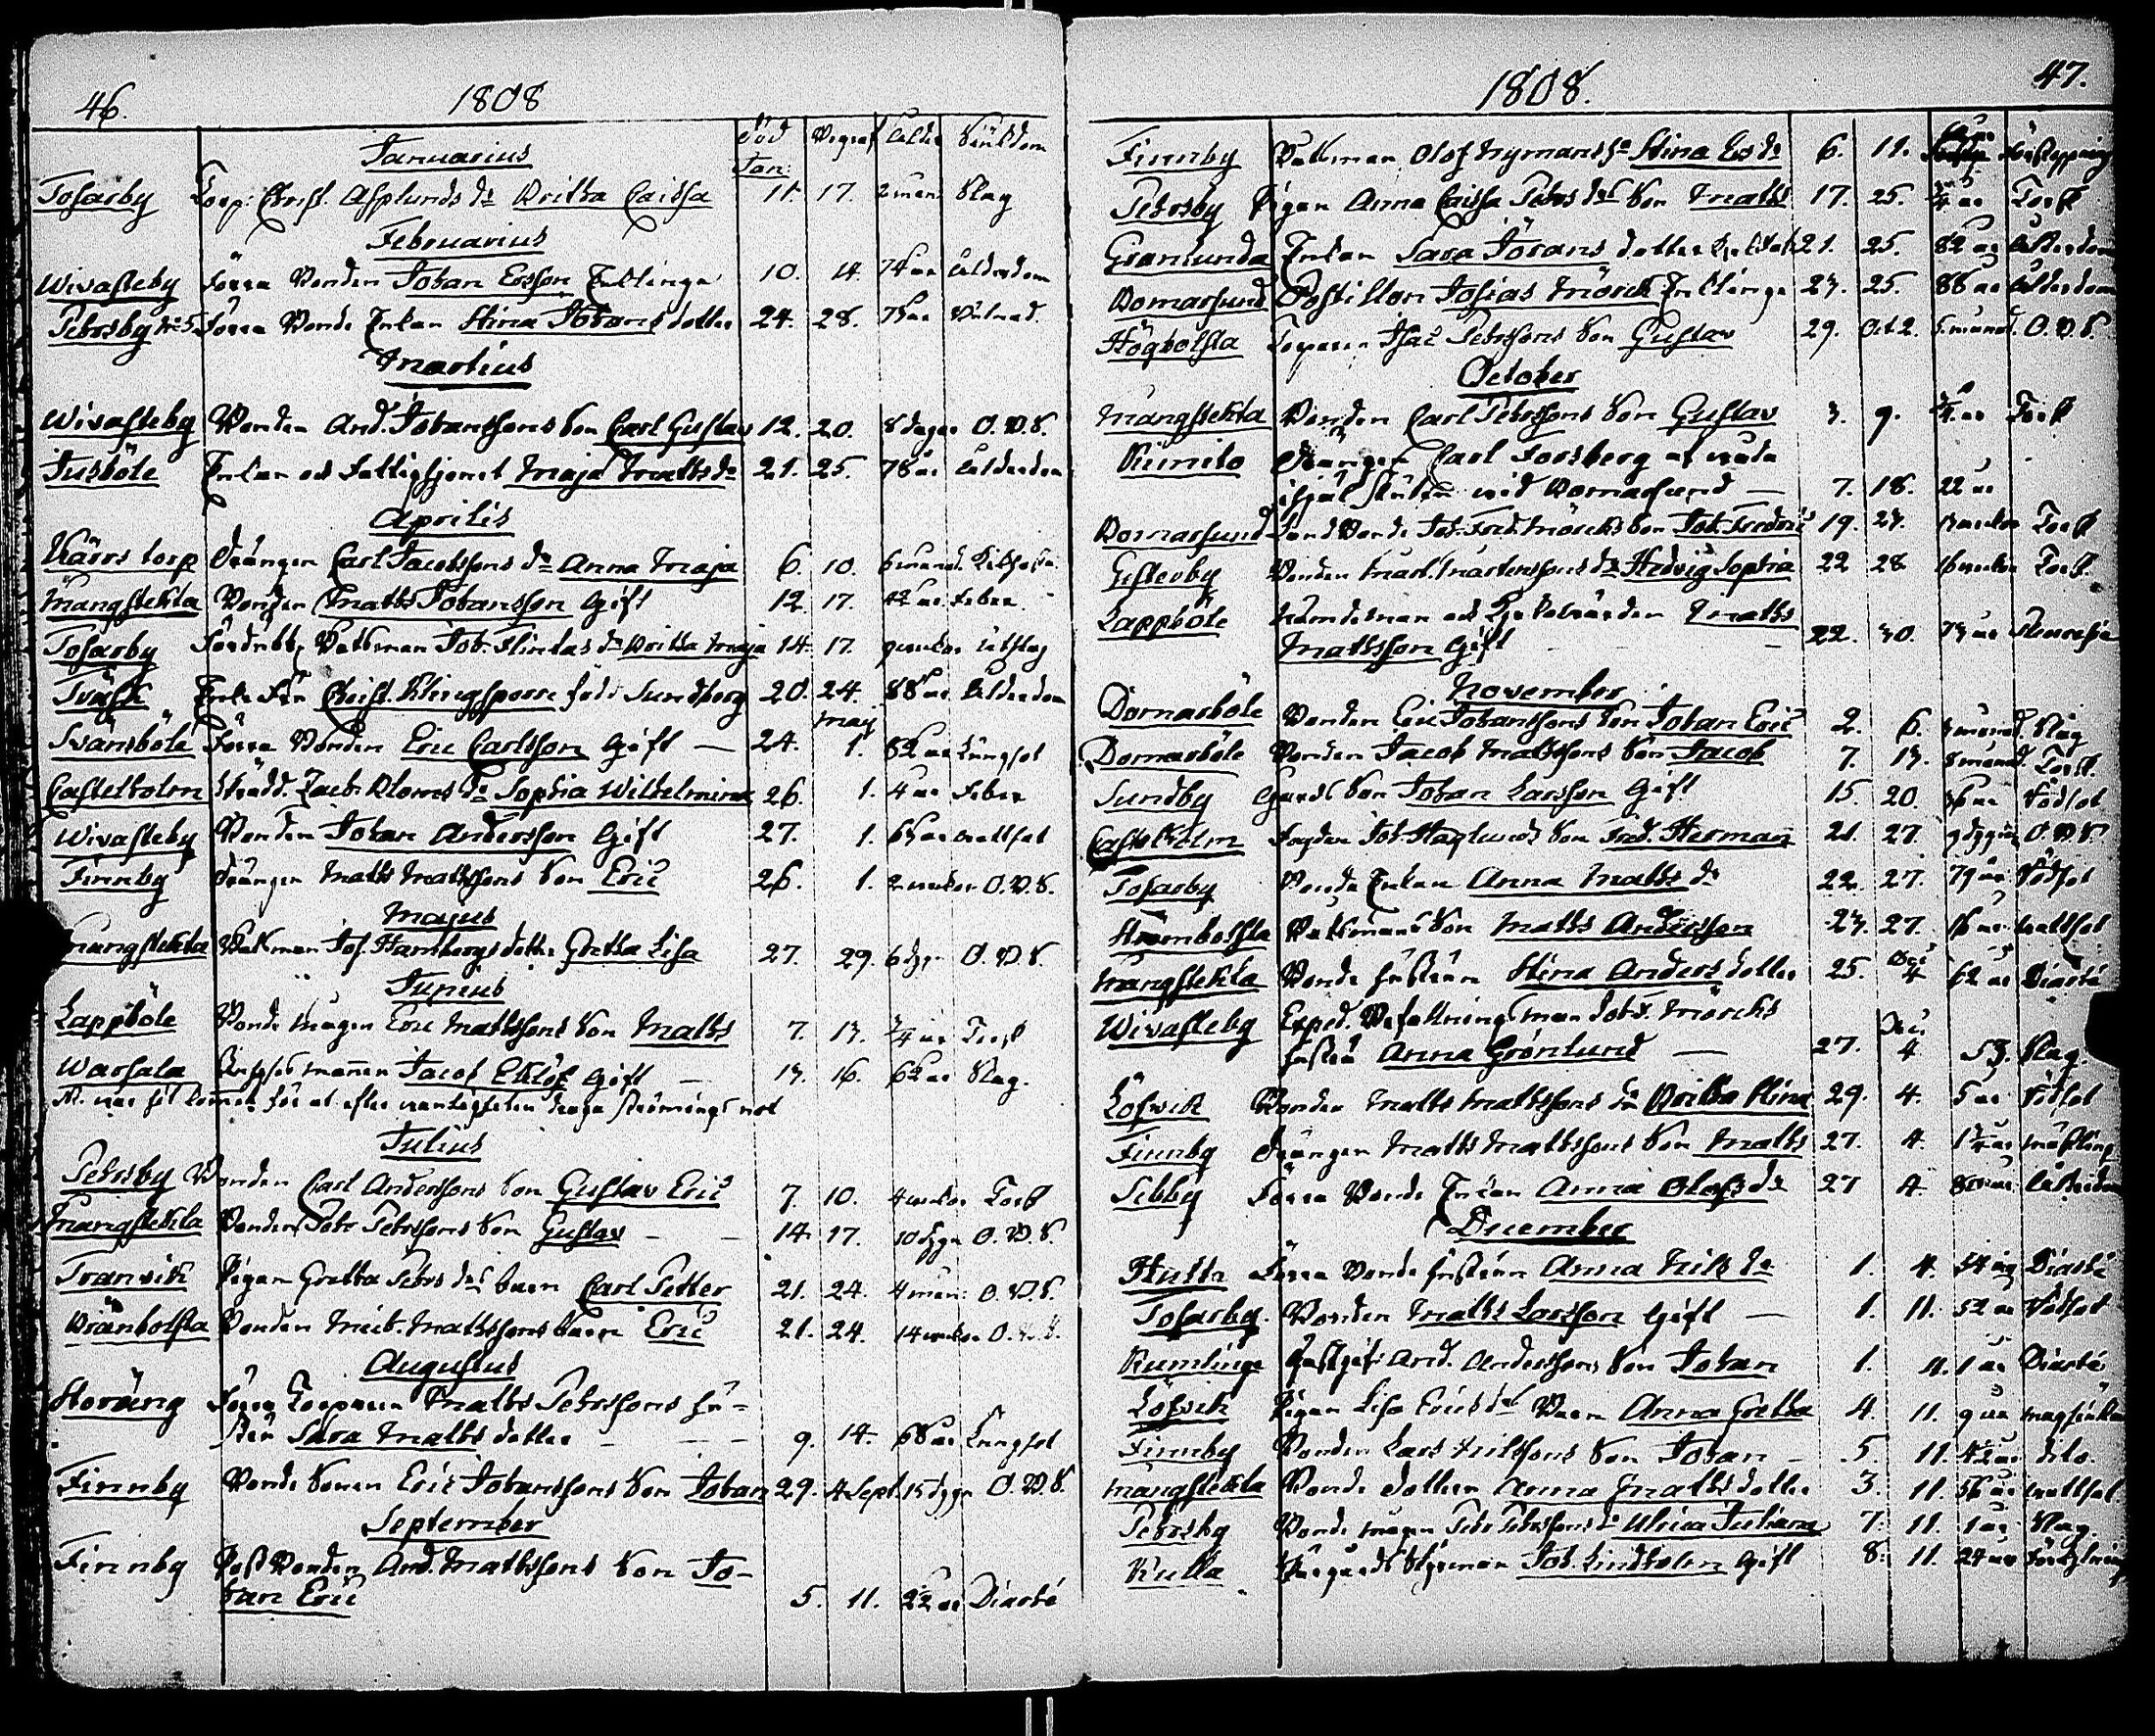 46. 1808
Död Begraf Ålder Siukdom
Januarius Jan:
Tosarby Torp: Christ. Asplunds dr Britha Caissa 11. 17. 2 mån Slag
Februarius
Wivasteby Förra Bonden Johan Ersson Enklinge 10. 14. 74 år Ålderdom
Pehrsby Förra Bonde Enkan Stina Johans dotter 24. 28.
Martius
Wivasteby Bonden And. Johanssons Son Carl Gustav 12. 20. 8 dagar O.B.S.
Jusböle Enkan och Fattighjonet Maja Matts dr 21. 25. 78 år Ålderdom
Aprilis
Kärrstorp Drängen Carl Jacobssons dr Anna Maja 6. 10. 6 månad.
Mångstekta Bonden Matts Johansson Gift 12. 17. 42 år Feber
Tosarby Båtsman Joh. Flintas dr Britha Maja 14. 17. 9 veckor Utslag
Träsk Enke Fru Christ. Klingsporre född Sundberg 20. 24. 88 år Ålderdom
Svartsböle Förra Bonden Eric Carlsson Gift — 24. Maij 1. 82 år Lungsot
Castelholm Skrädd. Zach. Bloms dr Sophia Wilhelmina 26. 1. 4 år Feber
Wivasteby Bonden Johan Andersson Gift 27. 1. 65 år Wattsot
Finnby Drängen Matts Mattssons Son Eric 26. 1. 2 veckor O.B.S.
Majus
Mångstekta Båtsman Joh. Hambergs dotter Gretha Lisa 27. 29. 6 dygn O.B.S.
Junius
Lappböle Bonde Mågen Eric Mattssons Son Matts 7. 13. ¾ år Trost
Warsala mannen Jacob Eklöf Gift — 13. 16. 62 år Slag.
N. var hit kommen för at efter vanligheten draga strömings not
Julius
Pehrsby Bonden Carl Anderssons Son Gustav Eric 7. 10. 4 veckor Torsk
Mångstekta Bonden Pehr Pehrssons Son Gustav — — 14. 17. 10 dygn O.B.S.
Tranvik Pigan Gretha Pehrs drs barn Carl Petter 21. 24. 4 mån: O.B.S.
Bränbolsta Bonden Mich. Mattssons barn Eric 21. 24. 14 veckor O.B.S.
Augustus
Storäng Förra Torparen Matts Pehrssons hu-
stru Sara Matts dotter — — — 9. 14. 68 år Lungsot
Finnby Bonde Sonen Eric Johanssons Son Johan 29. 4 Sept. 15 dygn O.B.S.
September
Finnby Post Bonden And. Mattssons Son Jo-
han Eric 5. 11. 2½ år Diarhé
1808. 47.
Finnby Båtsman Olof Nymans hu Stina Ersdr 6. 11.
Pehrsby Pigan Anna Caissa Pehrs drs Son Matts 17. 25. ¾ år Torsk
Granlunda Enkan Sara Jörans dotter 21. 25. 82 år Ålderdom
Bomarsund Postillon Josias Mörck Enklinge 23. 25. 88 år Ålderdom
Högbolsta Torparen Isac Pehrssons Son Gustav 29. Oct. 2. 5. månad. O.B.S.
October
Mångstekta Bonden Carl Pehrssons Son Gustav 3. 9. ¾ år Torsk
Kimito Drängen Carl Forsberg af våda
ihjäl skuten vid Bomarsund — 7. 18. 22 år
Bomarsund Sund Bonde Joh. Fred. Mörcks Son Joh. Fredric 19. 23. 13 veckor Torsk
Gesterby Bonden Mart. Martenssons dr Hedvig Sophia 22 28 16 veckor Torsk.
Lappböle Nämdeman och Kyrkovärden Matts
Mattsson Gift — — 22. 30. 73 år Pleuresie
November
Domarböle Bonden Eric Johanssons Son Johan Eric 2. 6. 3 månad. Slag
Domarböle Bonden Jacob Mattssons Son Jacob 7. 13. 8 månad. Torsk.
Sundby Gårds Son Johan Larsson Gift 15. 20. 36 år Rödsot
Castelholm Fogden Joh. Haglunds Son Fred. Herman 21. 27. 9 dygn O.B.S.
Tosarby Bonde Enkan Anna Matts dr 22. 27. 79 år Rödsot
Strömbolsta Båtsmans Son Matts Andersson 23. 27. 16 år Wattsot
Mångstekta Bonde hustrun Stina Anders dotter 25. Dec: 4 62 år Diarhé
Wivasteby Exped. Befallningsman Joh. Mörcks
hustru Anna Grönlund — 27. Dec: 4. 53. Slag
Löfvik Bonden Matts Mattssons dr Britha Stina 29. 4. 5 år Rödsot
Finnby Drängen Matts Mattssons Son Matts 27. 4. 1½ år Mäsling
Sebby Förra Bonde Enkan Anna Olofs dr 27 4. 80 år Ålderdom
December
Hulta Förra Bonde hustrun Anna Nils dr 1. 4. 54 år Diarhé
Tosarby. Bonden Matts Larsson Gift — 1. 11. 52 år Rödsot
Kumlinge Gästgif: And. Anderssons Son Johan 1. 4. 1 år Diarhé
Löfvik Pigan Lisa Erics drs Barn Anna Gretha 4. 11. 9 år
Finnby Bonden Lars Nilssons Son Johan — 5. 11. 4½ år dito.
Mångstekta Bonde dottren Anna Matts dotter 3. 11. 56 år Wattsot
Pehrsby Bonde Mågen Pehr Pehrssons dr Ulrica Juliana 7. 11. 1 år Slag.
Kulla Skärgårds Styrman Joh. Lindholm Gift 8. 11. 24 år